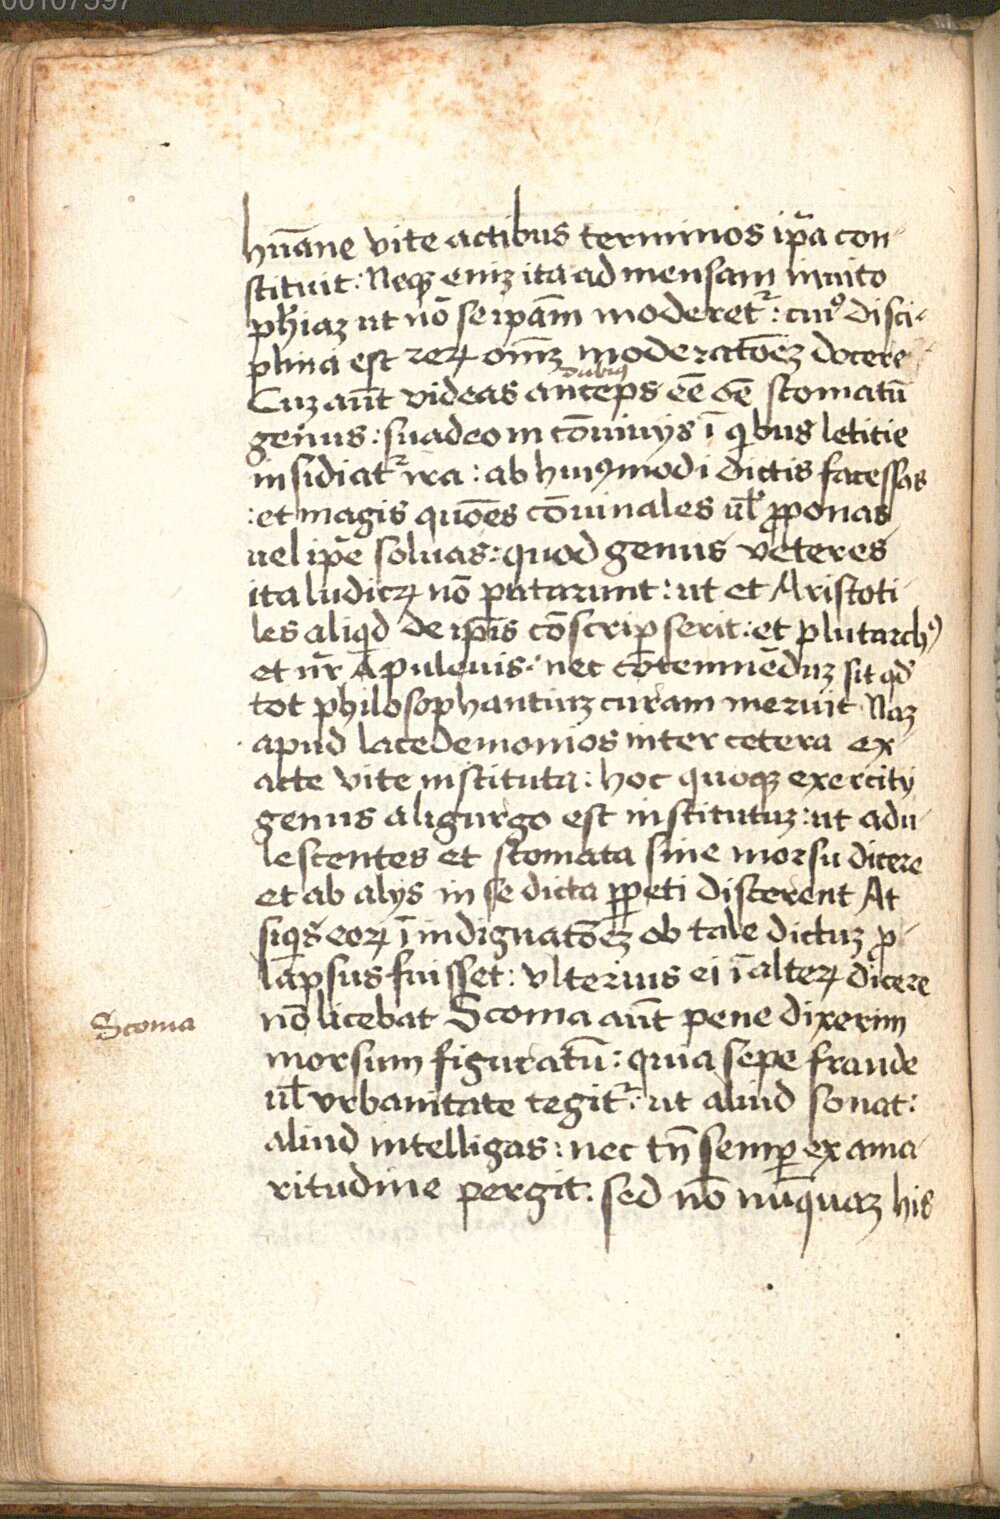 00107597
hūane vite actibus terminos ip̄a con-
stituit: Neqꝫ eniꝫ ita ad mensam inuito
ph̄iaꝫ ut nō seip̄am moderet᷑: cui⁹ disci-
plina est reꝝ om̄iꝫ moderatōeꝫ docere
dubiū
Cuꝫ aūt videas anceps eē oē scomatū
genus: suadeo in cōuiuijs ī q̇bus letitie
insidiat᷑ ira: ab hui⁹modi dictis facessas
: et magis quōes cōuiuales ul̄ ꝓponas
uel ip̄e soluas: quod genus veteres
ita ludicꝝ nō putarunt: ut et Aristoti-
les aliqd de ip̄is cōscripserit: et plutarch⁹
et nr̄ Apuleuis: nec cōtemnēduꝫ sit qd̄
tot philosophantiuꝫ curam meruit Naꝫ
apud lacedemonios inter cetera ex-
acte vite instituta: hoc quoqꝫ exercitij
genus a ligurgo est institutuꝫ: ut adu-
lescentes et scomata sine morsu dicere
et ab alijs in se dicta ꝑpeti discerent At
siqͥs eoꝝ ī indignatōeꝫ ob tale dictuꝫ ꝓ-
lapsus fuisset: vlterius ei ī alteꝝ dicere
nō licebat Scoma aūt pene dixerim
Scoma
morsum figuratū: quia sepe fraude
ul̄ vrbanitate tegit᷑: ut aliud sonat:
aliud intelligas: nec tn̄ semꝑ ex ama-
ritudine pergit: sed nō nūquaꝫ his